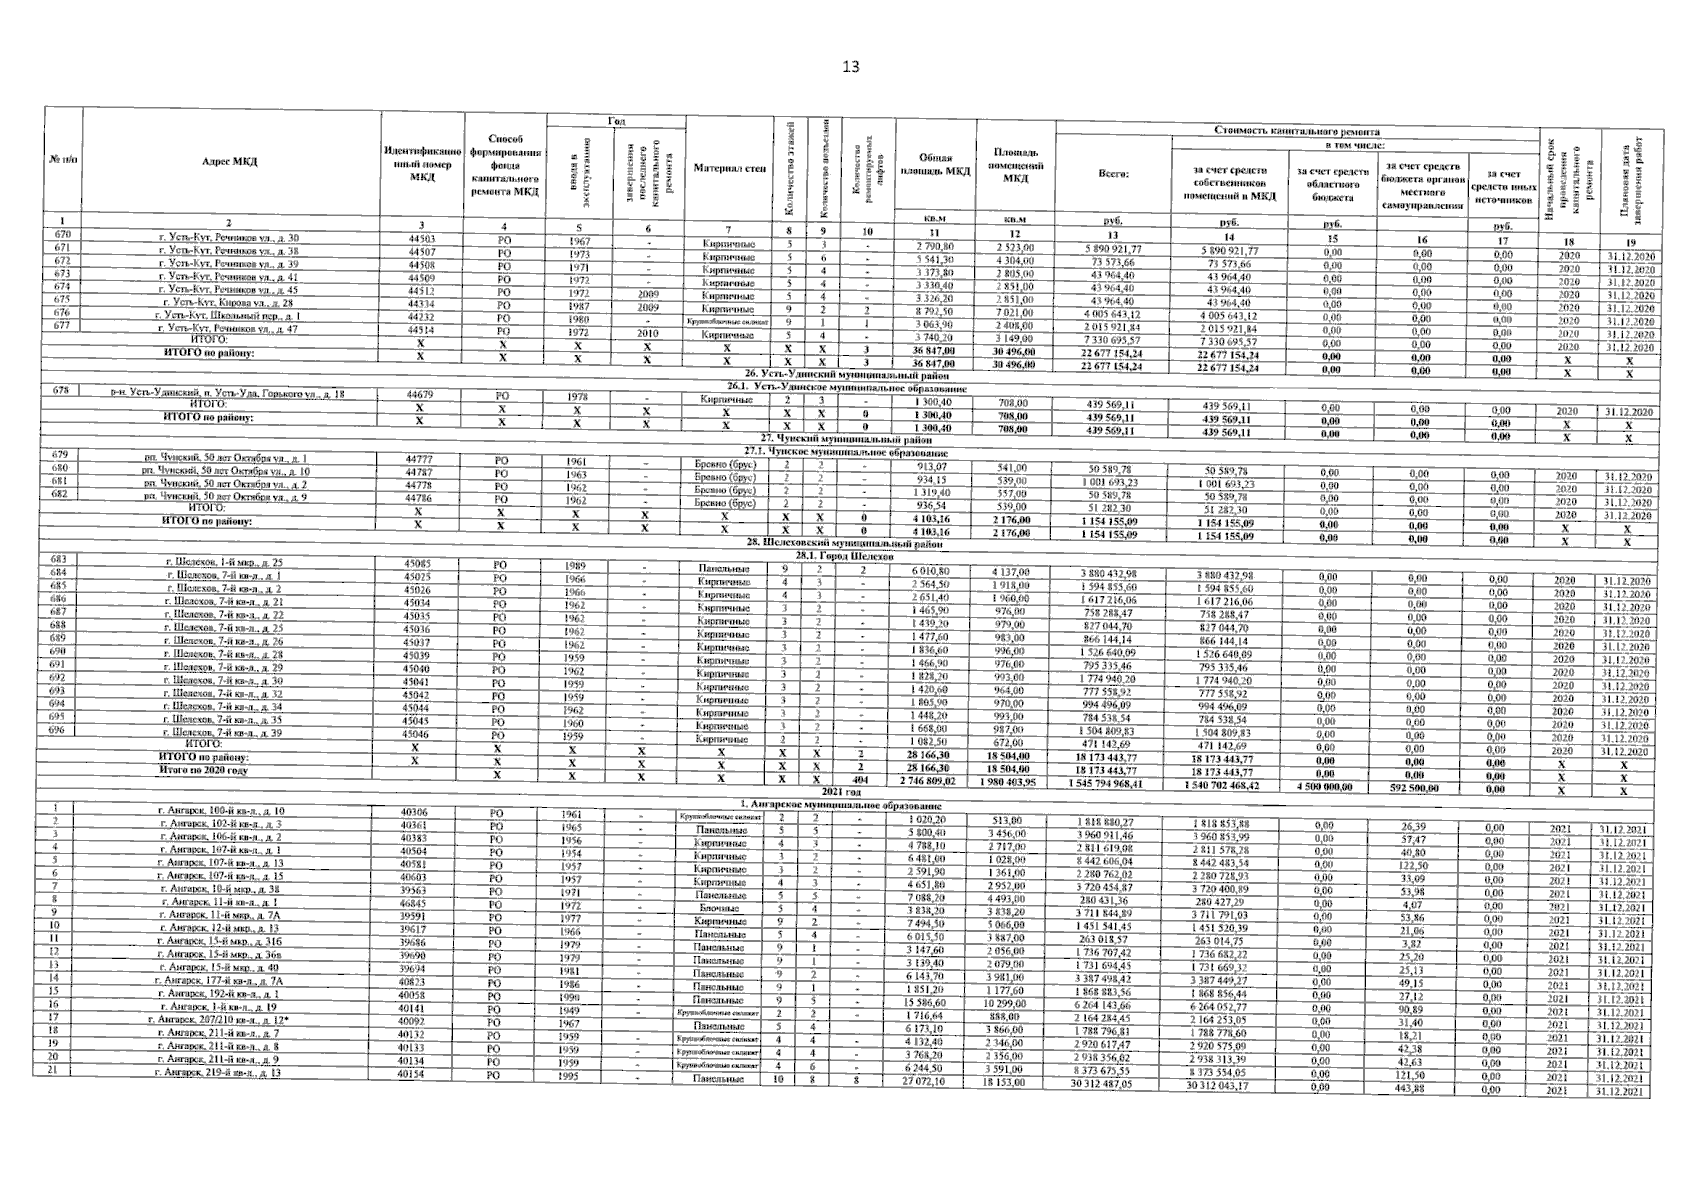 13
№ п/п | Адрес МКД | Идентификационный номер МКД | Способ формирования фонда капитального ремонта МКД | Год | ввода в эксплуатацию | завершения последнего капитального ремонта | Материал стен | Количество этажей | Количество подъездов | Количество ремонтируемых лифтов | Общая площадь МКД | Площадь помещений МКД | Стоимость капитального ремонта | Всего: | в том числе: | за счет средств собственников помещений в МКД | за счет средств областного бюджета | за счет средств бюджета органов местного самоуправления | за счет средств иных источников | Начальный срок проведения капитального ремонта | Плановая дата завершения работ
кв.м | кв.м | руб. | руб. | руб. | руб.
1 | 2 | 3 | 4 | 5 | 6 | 7 | 8 | 9 | 10 | 11 | 12 | 13 | 14 | 15 | 16 | 17 | 18 | 19
670 | г. Усть-Кут, Речников ул., д. 30 | 44503 | РО | 1967 | - | Кирпичные | 5 | 3 | - | 2 790,80 | 2 523,00 | 5 890 921,77 | 5 890 921,77 | 0,00 | 0,00 | 0,00 | 2020 | 31.12.2020
671 | г. Усть-Кут, Речников ул., д. 38 | 44507 | РО | 1973 | - | Кирпичные | 5 | 6 | - | 5 541,30 | 4 304,00 | 73 573,66 | 73 573,66 | 0,00 | 0,00 | 0,00 | 2020 | 31.12.2020
672 | г. Усть-Кут, Речников ул., д. 39 | 44508 | РО | 1971 | - | Кирпичные | 5 | 4 | - | 3 373,80 | 2 805,00 | 43 964,40 | 43 964,40 | 0,00 | 0,00 | 0,00 | 2020 | 31.12.2020
673 | г. Усть-Кут, Речников ул., д. 41 | 44509 | РО | 1972 | - | Кирпичные | 5 | 4 | - | 3 330,40 | 2 851,00 | 43 964,40 | 43 964,40 | 0,00 | 0,00 | 0,00 | 2020 | 31.12.2020
674 | г. Усть-Кут, Речников ул., д. 45 | 44512 | РО | 1972 | 2009 | Кирпичные | 5 | 4 | - | 3 326,20 | 2 851,00 | 43 964,40 | 43 964,40 | 0,00 | 0,00 | 0,00 | 2020 | 31.12.2020
675 | г. Усть-Кут, Кирова ул., д. 28 | 44334 | РО | 1987 | 2009 | Кирпичные | 9 | 2 | 2 | 8 792,50 | 7 021,00 | 4 005 643,12 | 4 005 643,12 | 0,00 | 0,00 | 0,00 | 2020 | 31.12.2020
676 | г. Усть-Кут, Школьный пер., д. 1 | 44232 | РО | 1980 | - | Крупноблочные силикат | 9 | 1 | 1 | 3 063,90 | 2 408,00 | 2 015 921,84 | 2 015 921,84 | 0,00 | 0,00 | 0,00 | 2020 | 31.12.2020
677 | г. Усть-Кут, Речников ул., д. 47 | 44514 | РО | 1972 | 2010 | Кирпичные | 5 | 4 | - | 3 740,20 | 3 149,00 | 7 330 695,57 | 7 330 695,57 | 0,00 | 0,00 | 0,00 | 2020 | 31.12.2020
ИТОГО: | Х | Х | Х | Х | Х | Х | Х | 3 | 36 847,00 | 30 496,00 | 22 677 154,24 | 22 677 154,24 | 0,00 | 0,00 | 0,00 | Х | Х
ИТОГО по району: | Х | Х | Х | Х | Х | Х | Х | 3 | 36 847,00 | 30 496,00 | 22 677 154,24 | 22 677 154,24 | 0,00 | 0,00 | 0,00 | Х | Х
26. Усть-Удинский муниципальный район
26.1. Усть-Удинское муниципальное образование
678 | р-н. Усть-Удинский, п. Усть-Уда, Горького ул., д. 18 | 44679 | РО | 1978 | - | Кирпичные | 2 | 3 | - | 1 300,40 | 708,00 | 439 569,11 | 439 569,11 | 0,00 | 0,00 | 0,00 | 2020 | 31.12.2020
ИТОГО: | Х | Х | Х | Х | Х | Х | Х | 0 | 1 300,40 | 708,00 | 439 569,11 | 439 569,11 | 0,00 | 0,00 | 0,00 | Х | Х
ИТОГО по району: | Х | Х | Х | Х | Х | Х | Х | 0 | 1 300,40 | 708,00 | 439 569,11 | 439 569,11 | 0,00 | 0,00 | 0,00 | Х | Х
27. Чунский муниципальный район
27.1. Чунское муниципальное образование
679 | рп. Чунский, 50 лет Октября ул., д. 1 | 44777 | РО | 1961 | - | Бревно (брус) | 2 | 2 | - | 913,07 | 541,00 | 50 589,78 | 50 589,78 | 0,00 | 0,00 | 0,00 | 2020 | 31.12.2020
680 | рп. Чунский, 50 лет Октября ул., д. 10 | 44787 | РО | 1963 | - | Бревно (брус) | 2 | 2 | - | 934,15 | 539,00 | 1 001 693,23 | 1 001 693,23 | 0,00 | 0,00 | 0,00 | 2020 | 31.12.2020
681 | рп. Чунский, 50 лет Октября ул., д. 2 | 44778 | РО | 1962 | - | Бревно (брус) | 2 | 2 | - | 1 319,40 | 557,00 | 50 589,78 | 50 589,78 | 0,00 | 0,00 | 0,00 | 2020 | 31.12.2020
682 | рп. Чунский, 50 лет Октября ул., д. 9 | 44786 | РО | 1962 | - | Бревно (брус) | 2 | 2 | - | 936,54 | 539,00 | 51 282,30 | 51 282,30 | 0,00 | 0,00 | 0,00 | 2020 | 31.12.2020
ИТОГО: | Х | Х | Х | Х | Х | Х | Х | 0 | 4 103,16 | 2 176,00 | 1 154 155,09 | 1 154 155,09 | 0,00 | 0,00 | 0,00 | Х | Х
ИТОГО по району: | Х | Х | Х | Х | Х | Х | Х | 0 | 4 103,16 | 2 176,00 | 1 154 155,09 | 1 154 155,09 | 0,00 | 0,00 | 0,00 | Х | Х
28. Шелеховский муниципальный район
28.1. Город Шелехов
683 | г. Шелехов, 1-й мкр., д. 25 | 45085 | РО | 1989 | - | Панельные | 9 | 2 | 2 | 6 010,80 | 4 137,00 | 3 880 432,98 | 3 880 432,98 | 0,00 | 0,00 | 0,00 | 2020 | 31.12.2020
684 | г. Шелехов, 7-й кв-л., д. 1 | 45025 | РО | 1966 | - | Кирпичные | 4 | 3 | - | 2 564,50 | 1 918,00 | 1 594 855,60 | 1 594 855,60 | 0,00 | 0,00 | 0,00 | 2020 | 31.12.2020
685 | г. Шелехов, 7-й кв-л., д. 2 | 45026 | РО | 1966 | - | Кирпичные | 4 | 3 | - | 2 651,40 | 1 960,00 | 1 617 216,06 | 1 617 216,06 | 0,00 | 0,00 | 0,00 | 2020 | 31.12.2020
686 | г. Шелехов, 7-й кв-л., д. 21 | 45034 | РО | 1962 | - | Кирпичные | 3 | 2 | - | 1 465,90 | 976,00 | 758 288,47 | 758 288,47 | 0,00 | 0,00 | 0,00 | 2020 | 31.12.2020
687 | г. Шелехов, 7-й кв-л., д. 22 | 45035 | РО | 1962 | - | Кирпичные | 3 | 2 | - | 1 439,20 | 979,00 | 827 044,70 | 827 044,70 | 0,00 | 0,00 | 0,00 | 2020 | 31.12.2020
688 | г. Шелехов, 7-й кв-л., д. 25 | 45036 | РО | 1962 | - | Кирпичные | 3 | 2 | - | 1 477,60 | 983,00 | 866 144,14 | 866 144,14 | 0,00 | 0,00 | 0,00 | 2020 | 31.12.2020
689 | г. Шелехов, 7-й кв-л., д. 26 | 45037 | РО | 1962 | - | Кирпичные | 3 | 2 | - | 1 836,60 | 996,00 | 1 526 640,09 | 1 526 640,09 | 0,00 | 0,00 | 0,00 | 2020 | 31.12.2020
690 | г. Шелехов, 7-й кв-л., д. 28 | 45039 | РО | 1959 | - | Кирпичные | 3 | 2 | - | 1 466,90 | 976,00 | 795 335,46 | 795 335,46 | 0,00 | 0,00 | 0,00 | 2020 | 31.12.2020
691 | г. Шелехов, 7-й кв-л., д. 29 | 45040 | РО | 1962 | - | Кирпичные | 3 | 2 | - | 1 828,20 | 993,00 | 1 774 940,20 | 1 774 940,20 | 0,00 | 0,00 | 0,00 | 2020 | 31.12.2020
692 | г. Шелехов, 7-й кв-л., д. 30 | 45041 | РО | 1959 | - | Кирпичные | 3 | 2 | - | 1 420,60 | 964,00 | 777 558,92 | 777 558,92 | 0,00 | 0,00 | 0,00 | 2020 | 31.12.2020
693 | г. Шелехов, 7-й кв-л., д. 32 | 45042 | РО | 1959 | - | Кирпичные | 3 | 2 | - | 1 805,90 | 970,00 | 994 496,09 | 994 496,09 | 0,00 | 0,00 | 0,00 | 2020 | 31.12.2020
694 | г. Шелехов, 7-й кв-л., д. 34 | 45044 | РО | 1962 | - | Кирпичные | 3 | 2 | - | 1 448,20 | 993,00 | 784 538,54 | 784 538,54 | 0,00 | 0,00 | 0,00 | 2020 | 31.12.2020
695 | г. Шелехов, 7-й кв-л., д. 35 | 45045 | РО | 1960 | - | Кирпичные | 3 | 2 | - | 1 668,00 | 987,00 | 1 504 809,83 | 1 504 809,83 | 0,00 | 0,00 | 0,00 | 2020 | 31.12.2020
696 | г. Шелехов, 7-й кв-л., д. 39 | 45046 | РО | 1959 | - | Кирпичные | 2 | 2 | - | 1 082,50 | 672,00 | 471 142,69 | 471 142,69 | 0,00 | 0,00 | 0,00 | 2020 | 31.12.2020
ИТОГО: | Х | Х | Х | Х | Х | Х | Х | 2 | 28 166,30 | 18 504,00 | 18 173 443,77 | 18 173 443,77 | 0,00 | 0,00 | 0,00 | Х | Х
ИТОГО по району: | Х | Х | Х | Х | Х | Х | Х | 2 | 28 166,30 | 18 504,00 | 18 173 443,77 | 18 173 443,77 | 0,00 | 0,00 | 0,00 | Х | Х
Итого по 2020 году | Х | Х | Х | Х | Х | Х | 404 | 2 746 809,02 | 1 980 403,95 | 1 545 794 968,41 | 1 540 702 468,42 | 4 500 000,00 | 592 500,00 | 0,00 | Х | Х
2021 год
1. Ангарское муниципальное образование
1 | г. Ангарск, 100-й кв-л., д. 10 | 40306 | РО | 1961 | - | Крупноблочные силикат | 2 | 2 | - | 1 020,20 | 513,00 | 1 818 880,27 | 1 818 853,88 | 0,00 | 26,39 | 0,00 | 2021 | 31.12.2021
2 | г. Ангарск, 102-й кв-л., д. 3 | 40361 | РО | 1965 | - | Панельные | 5 | 5 | - | 5 800,40 | 3 456,00 | 3 960 911,46 | 3 960 853,99 | 0,00 | 57,47 | 0,00 | 2021 | 31.12.2021
3 | г. Ангарск, 106-й кв-л., д. 2 | 40383 | РО | 1956 | - | Кирпичные | 4 | 3 | - | 4 788,10 | 2 717,00 | 2 811 619,08 | 2 811 578,28 | 0,00 | 40,80 | 0,00 | 2021 | 31.12.2021
4 | г. Ангарск, 107-й кв-л., д. 1 | 40504 | РО | 1954 | - | Кирпичные | 3 | 2 | - | 6 481,00 | 1 028,00 | 8 442 606,04 | 8 442 483,54 | 0,00 | 122,50 | 0,00 | 2021 | 31.12.2021
5 | г. Ангарск, 107-й кв-л., д. 13 | 40581 | РО | 1957 | - | Кирпичные | 3 | 2 | - | 2 591,90 | 1 361,00 | 2 280 762,02 | 2 280 728,93 | 0,00 | 33,09 | 0,00 | 2021 | 31.12.2021
6 | г. Ангарск, 107-й кв-л., д. 15 | 40603 | РО | 1957 | - | Кирпичные | 4 | 3 | - | 4 651,80 | 2 952,00 | 3 720 454,87 | 3 720 400,89 | 0,00 | 53,98 | 0,00 | 2021 | 31.12.2021
7 | г. Ангарск, 10-й мкр., д. 38 | 39563 | РО | 1971 | - | Панельные | 5 | 5 | - | 7 088,20 | 4 493,00 | 280 431,36 | 280 427,29 | 0,00 | 4,07 | 0,00 | 2021 | 31.12.2021
8 | г. Ангарск, 11-й кв-л., д. 1 | 46845 | РО | 1972 | - | Блочные | 5 | 4 | - | 3 838,20 | 3 838,20 | 3 711 844,89 | 3 711 791,03 | 0,00 | 53,86 | 0,00 | 2021 | 31.12.2021
9 | г. Ангарск, 11-й мкр., д. 7А | 39591 | РО | 1977 | - | Кирпичные | 9 | 2 | - | 7 494,50 | 5 066,00 | 1 451 541,45 | 1 451 520,39 | 0,00 | 21,06 | 0,00 | 2021 | 31.12.2021
10 | г. Ангарск, 12-й мкр., д. 13 | 39617 | РО | 1966 | - | Панельные | 5 | 4 | - | 6 015,50 | 3 887,00 | 263 018,57 | 263 014,75 | 0,00 | 3,82 | 0,00 | 2021 | 31.12.2021
11 | г. Ангарск, 15-й мкр., д. 31б | 39686 | РО | 1979 | - | Панельные | 9 | 1 | - | 3 147,60 | 2 056,00 | 1 736 707,42 | 1 736 682,22 | 0,00 | 25,20 | 0,00 | 2021 | 31.12.2021
12 | г. Ангарск, 15-й мкр., д. 36в | 39690 | РО | 1979 | - | Панельные | 9 | 1 | - | 3 139,40 | 2 079,00 | 1 731 694,45 | 1 731 669,32 | 0,00 | 25,13 | 0,00 | 2021 | 31.12.2021
13 | г. Ангарск, 15-й мкр., д. 40 | 39694 | РО | 1981 | - | Панельные | 9 | 2 | - | 6 143,70 | 3 981,00 | 3 387 498,42 | 3 387 449,27 | 0,00 | 49,15 | 0,00 | 2021 | 31.12.2021
14 | г. Ангарск, 177-й кв-л., д. 7А | 40823 | РО | 1986 | - | Панельные | 9 | 1 | - | 1 851,20 | 1 177,60 | 1 868 883,56 | 1 868 856,44 | 0,00 | 27,12 | 0,00 | 2021 | 31.12.2021
15 | г. Ангарск, 192-й кв-л., д. 1 | 40058 | РО | 1990 | - | Панельные | 9 | 5 | - | 15 586,60 | 10 299,00 | 6 264 143,66 | 6 264 052,77 | 0,00 | 90,89 | 0,00 | 2021 | 31.12.2021
16 | г. Ангарск, 1-й кв-л., д. 19 | 40141 | РО | 1949 | - | Крупноблочные силикат | 2 | 2 | - | 1 716,64 | 888,00 | 2 164 284,45 | 2 164 253,05 | 0,00 | 31,40 | 0,00 | 2021 | 31.12.2021
17 | г. Ангарск, 207/210 кв-л., д. 12* | 40092 | РО | 1967 | - | Панельные | 5 | 4 | - | 6 173,10 | 3 866,00 | 1 788 796,81 | 1 788 778,60 | 0,00 | 18,21 | 0,00 | 2021 | 31.12.2021
18 | г. Ангарск, 211-й кв-л., д. 7 | 40132 | РО | 1959 | - | Крупноблочные силикат | 4 | 4 | - | 4 132,40 | 2 346,00 | 2 920 617,47 | 2 920 575,09 | 0,00 | 42,38 | 0,00 | 2021 | 31.12.2021
19 | г. Ангарск, 211-й кв-л., д. 8 | 40133 | РО | 1959 | - | Крупноблочные силикат | 4 | 4 | - | 3 768,20 | 2 356,00 | 2 938 356,02 | 2 938 313,39 | 0,00 | 42,63 | 0,00 | 2021 | 31.12.2021
20 | г. Ангарск, 211-й кв-л., д. 9 | 40134 | РО | 1959 | - | Крупноблочные силикат | 4 | 6 | - | 6 244,50 | 3 591,00 | 8 373 675,55 | 8 373 554,05 | 0,00 | 121,50 | 0,00 | 2021 | 31.12.2021
21 | г. Ангарск, 219-й кв-л., д. 13 | 40154 | РО | 1995 | - | Панельные | 10 | 8 | 8 | 27 072,10 | 18 153,00 | 30 312 487,05 | 30 312 043,17 | 0,00 | 443,88 | 0,00 | 2021 | 31.12.2021